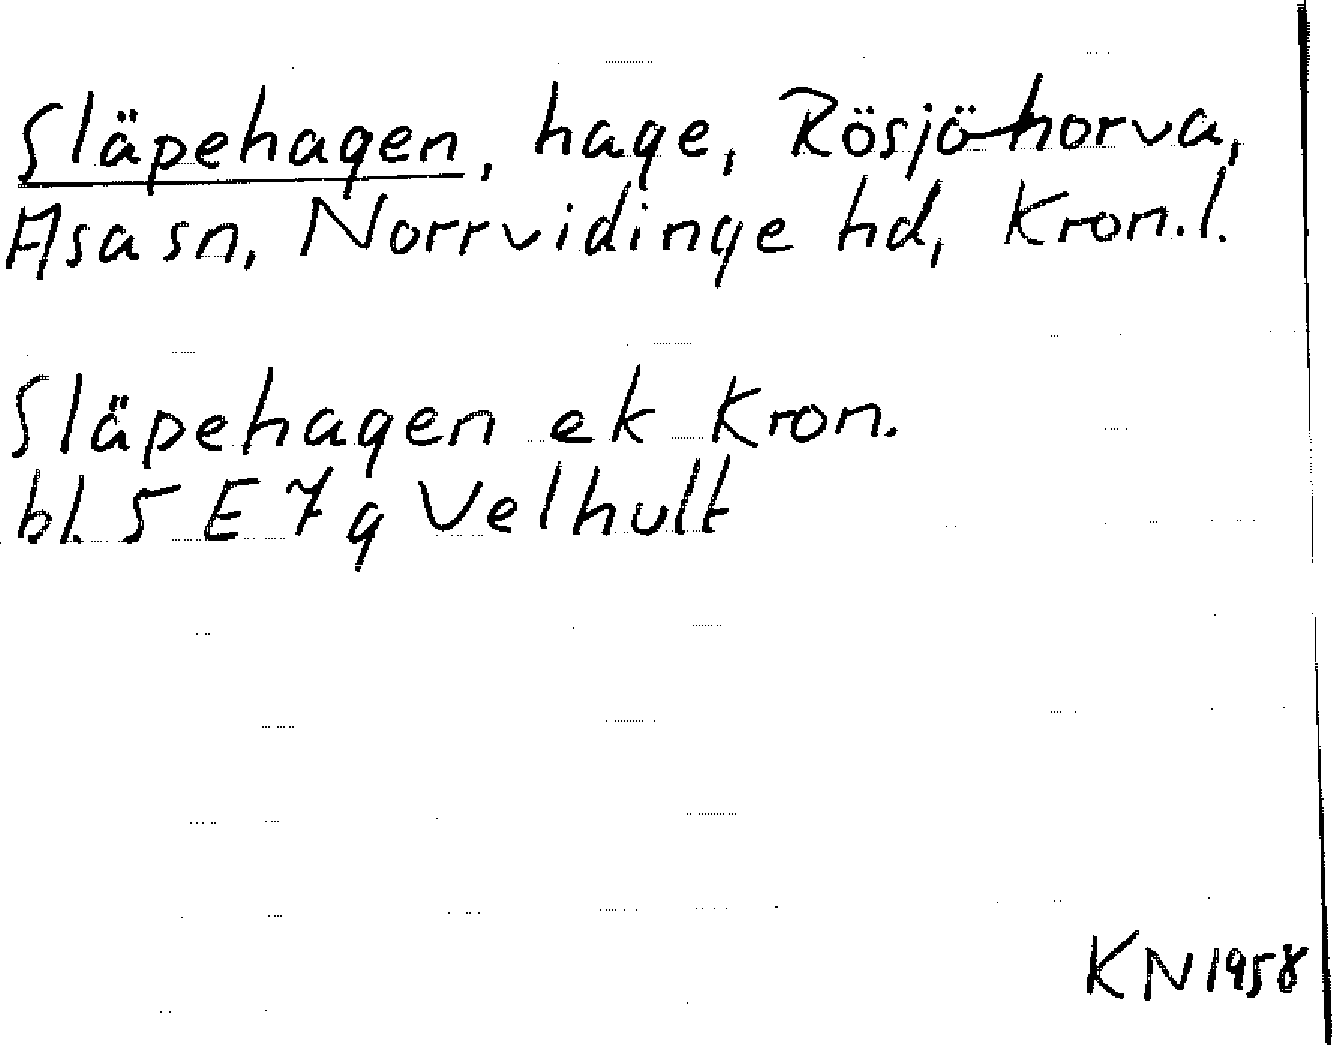 Släpehagen, hage, Rösjöhorva,
Asa sn, Norrvidinge hd, Kron.l.
Släpehagen ek Kron.
bl. 5 E 7 g Velhult
KN 1958